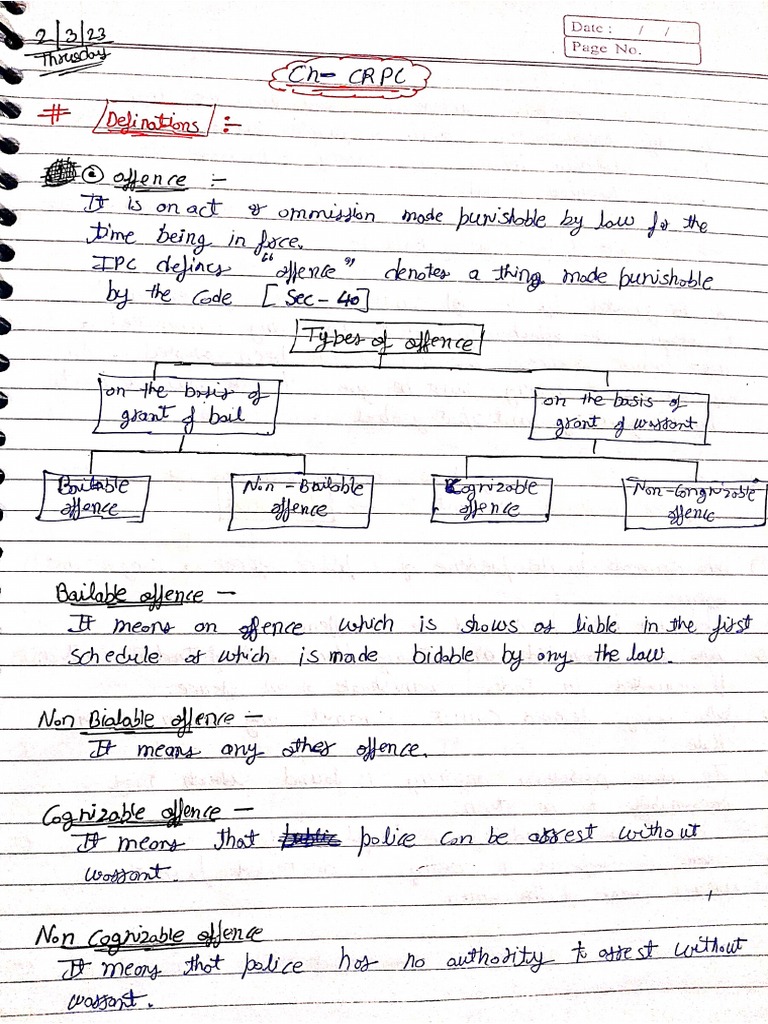 2/3/23
Thrusday
Date : / /
Page No.
Ch- CRPC
# Definations :-
(a) offence :-
It is an act or ommission made punishable by law for the
time being in force.
IPC defines "offence" denotes a thing made punishable
by the Code [Sec-40]
Types of offence
on the basis of
grant of bail
on the basis of
grant of warrant
Bailable
offence
Non-Bailable
offence
Cognizable
offence
Non-Congnizable
offence
Bailable offence —
It means an offence which is shows as liable in the first
schedule or which is made bidable by any the law.
Non Bialable offence :-
It means any other offence.
Cognizable offence —
It means that police can be arrest without
warrant.
Non Cognizable offence
It means that police has no authority to arrest without
warrant.